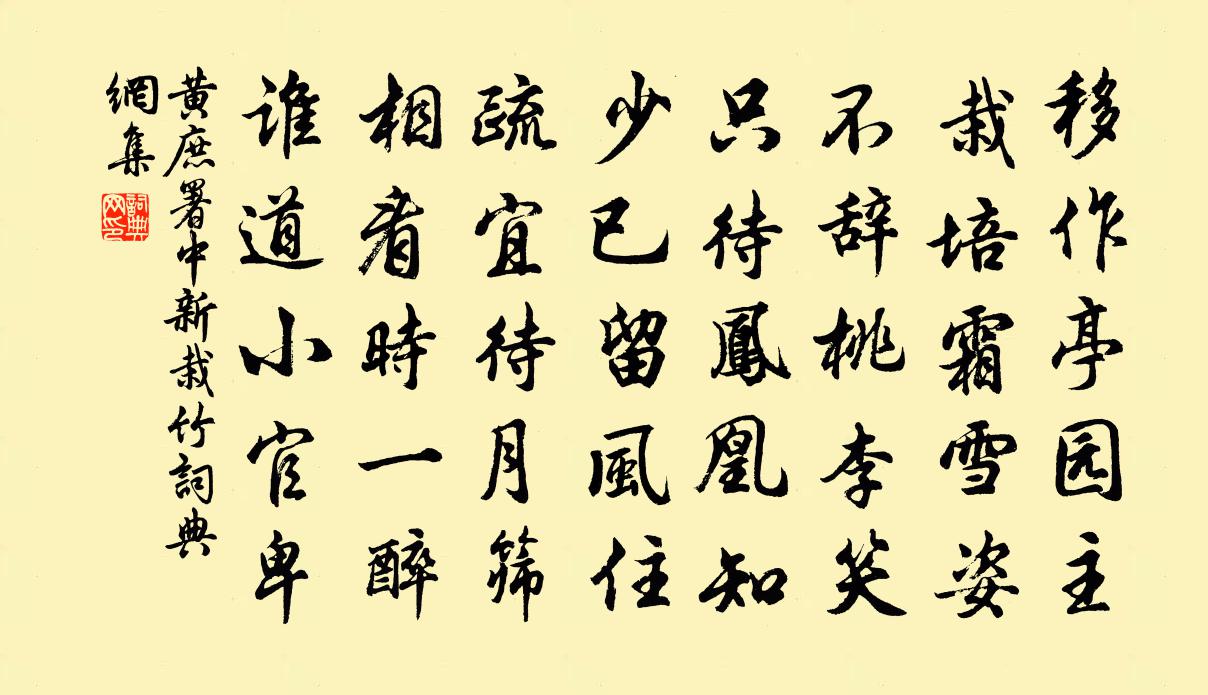 移作亭园主
栽培霜雪姿
不辞桃李笑
只待鳳凰知
少已留風住
疏宜待月筛
相看時一醉
谁道小官卑
黄庶署中新栽竹詞典
網集
詞典网印